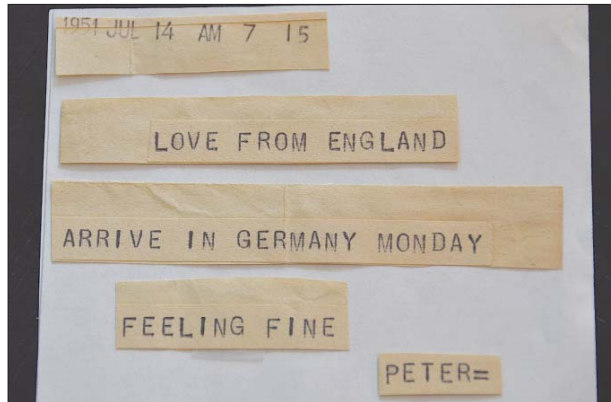 1951 JUL 14 AM 7 15
LOVE FROM ENGLAND
ARRIVE IN GERMANY MONDAY
FEELING FINE
PETER=